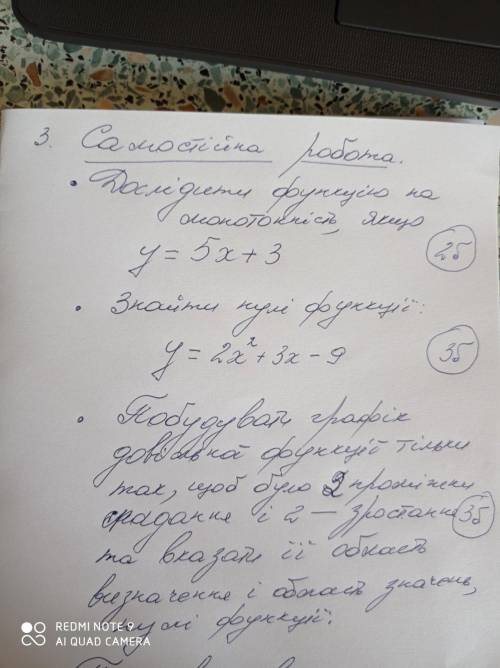 3. Самостійна робота.
• Дослідити функцію на
монотонність, якщо
y = 5x + 3 2б
• Знайти нулі функції:
y = 2x² + 3x - 9 3б
• Побудувати графік
довільної функції тільки
так, щоб було 2 проміжки
спадання і 2 – зростання 3б
та вказати її область
визначення і область значень,
нулі функції.
REDMI NOTE 9
AI QUAD CAMERA